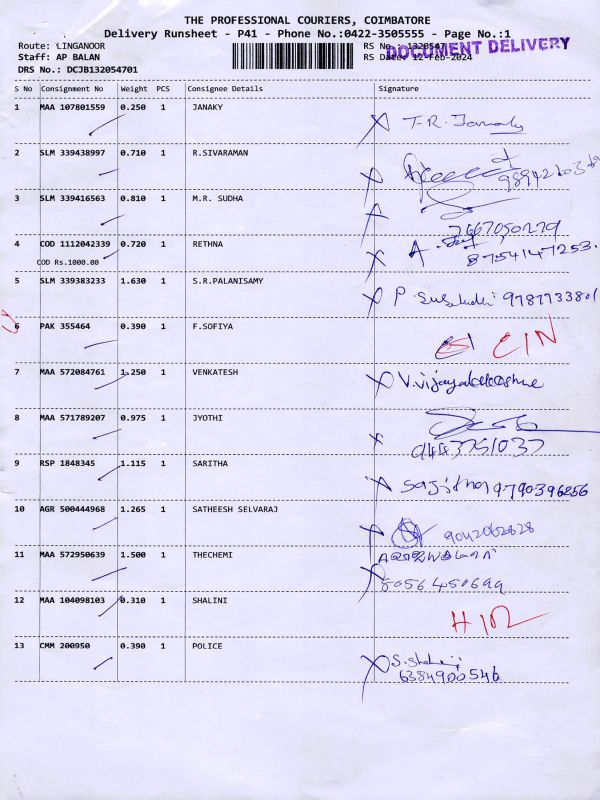 THE PROFESSIONAL COURIERS, COIMBATORE
Delivery Runsheet - P41 - Phone No.:0422-3505555 - Page No.:1
Route: LINGANOOR RS No.: 1320547
DOCUMENT DELIVERY
Staff: AP BALAN RS Date: 12-Feb-2024
DRS No.: DCJB132054701
S No Consignment No Weight PCS Consignee Details Signature
1 MAA 107801559 0.250 1 JANAKY X T-R. Janaky
2 SLM 339438997 0.710 1 R.SIVARAMAN X
3 SLM 339416563 0.810 1 M.R. SUDHA X 7667050279
4 COD 1112042339 0.720 1 RETHNA X A. 8754147253.
COD Rs.1000.00
5 SLM 339383233 1.630 1 S.R.PALANISAMY X P. 9787733801
6 PAK 355464 0.390 1 F.SOFIYA CIN
7 MAA 572084761 1.250 1 VENKATESH X
8 MAA 571789207 0.975 1 JYOTHI X 9443751037
9 RSP 1848345 1.115 1 SARITHA X 9790396256
10 AGR 500444968 1.265 1 SATHEESH SELVARAJ X 9042062828
11 MAA 572950639 1.500 1 THECHEMI X 8056450699
12 MAA 104098103 0.310 1 SHALINI
13 CMM 200950 0.390 1 POLICE X 6384900546